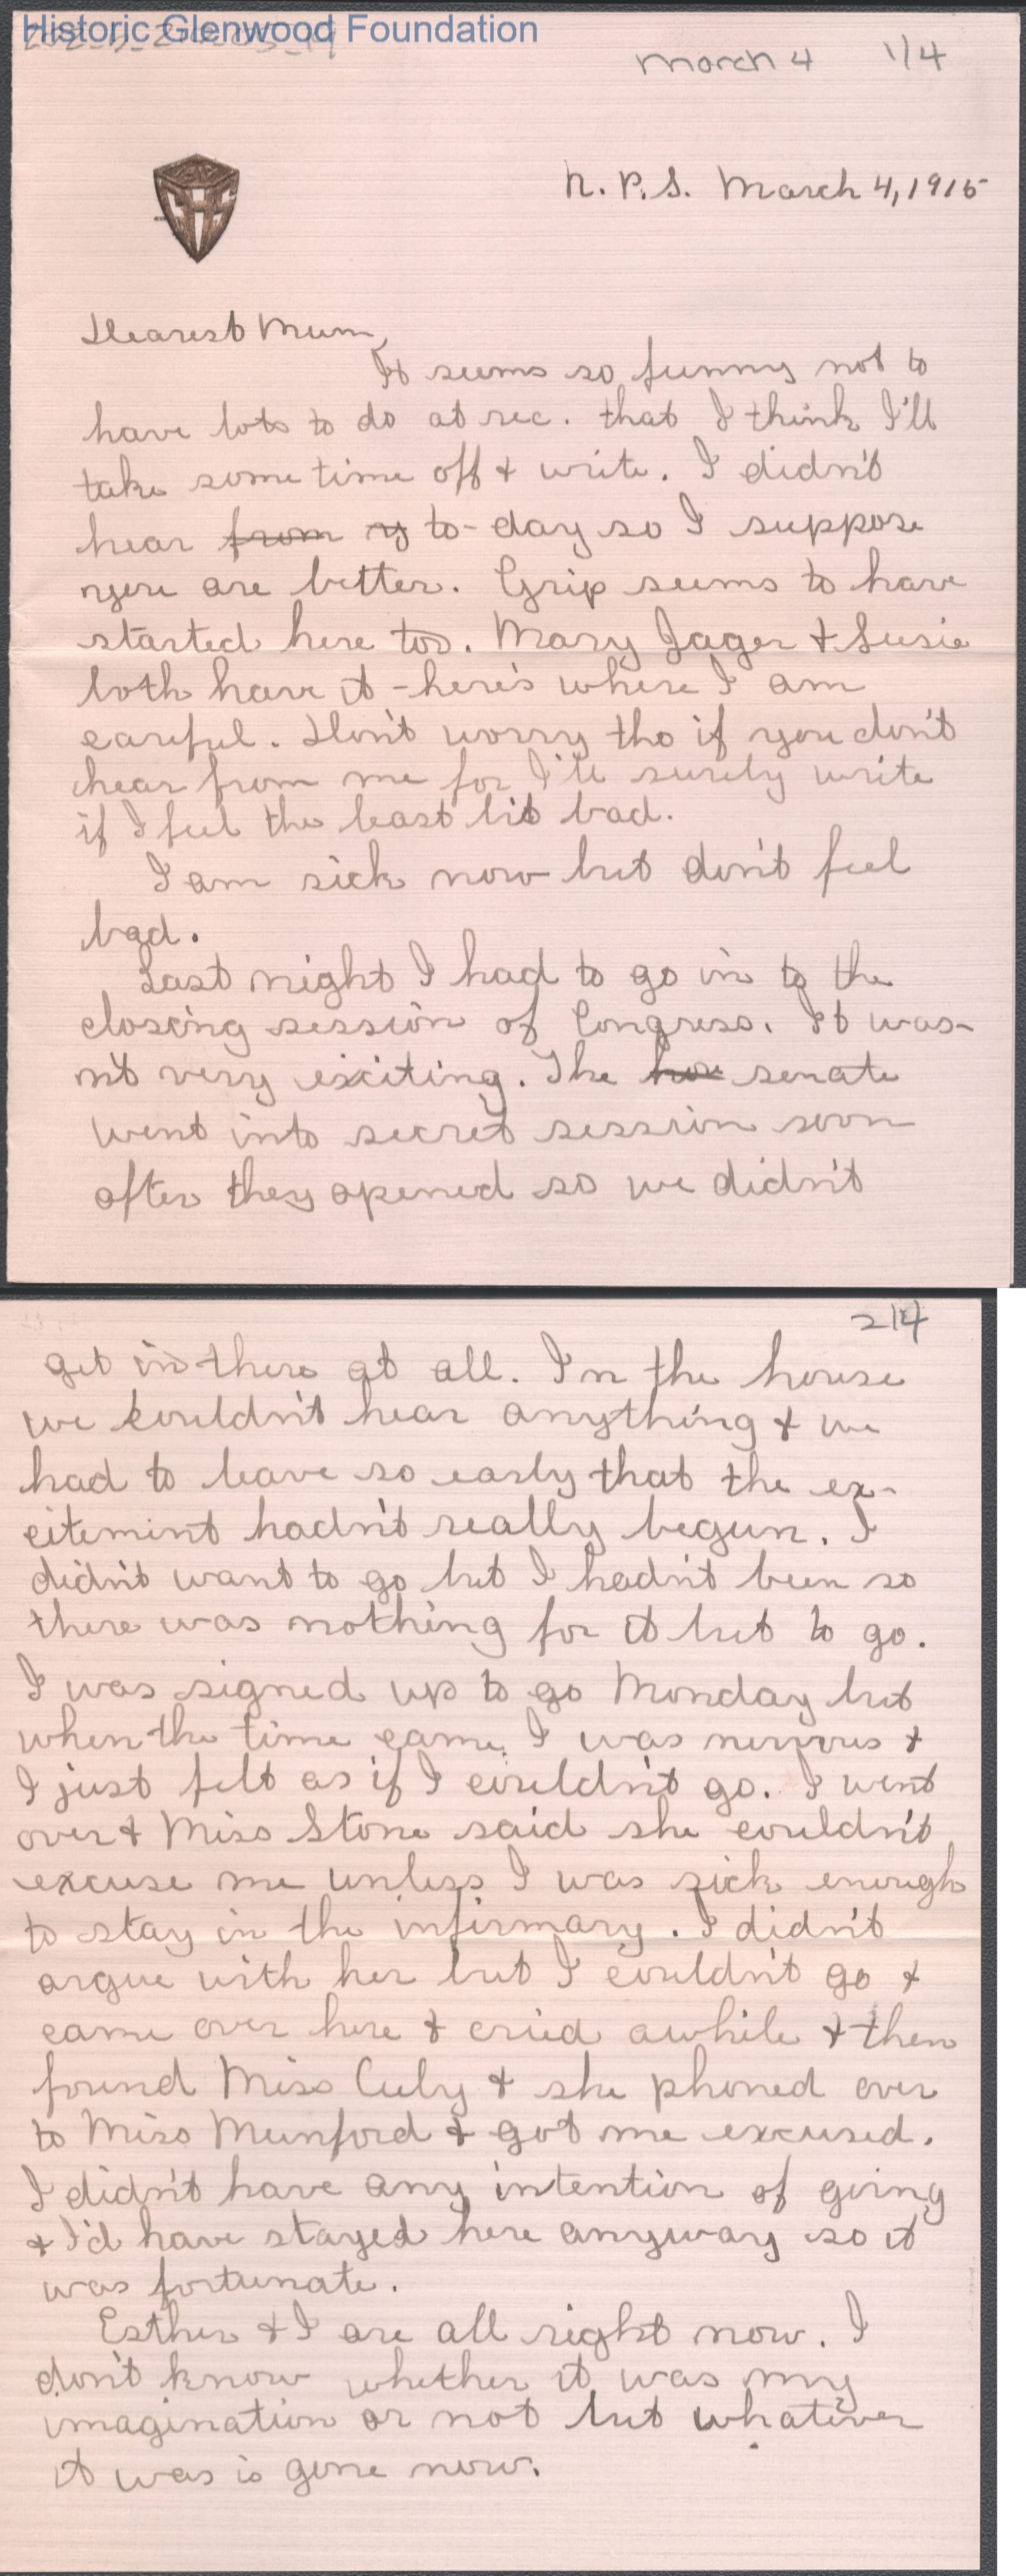 Historic Glenwood Foundation
March 4 1/4
N. P. S. March 4, 1915
Dearest Mum,
It seems so funny not to
have lots to do at rec. that I think I'll
take some time off & write. I didn't
hear from to-day so I suppose
you are better. Grip seems to have
started here too. Mary Jager & Susie
both have it - here's where I am
careful. Don't worry tho if you don't
hear from me for I'll surely write
if I feel the least bit bad.
I am sick now but don't feel
bad.
Last night I had to go in to the
closing session of Congress. It was-
n't very exciting. The hou senate
went into secret session soon
after they opened so we didn't
2/4
get in there at all. In the house
we couldn't hear anything & we
had to leave so early that the ex-
citement hadn't really begun. I
didn't want to go but I hadn't been so
there was nothing for it but to go.
I was signed up to go Monday but
when the time came I was nervous &
I just felt as if I couldn't go. I went
over & Miss Stone said she couldn't
excuse me unless I was sick enough
to stay in the infirmary. I didn't
argue with her but I couldn't go &
came over here & cried awhile & then
found Miss Culy & she phoned over
to Miss Munford & got me excused.
I didn't have any intention of going
& I'd have stayed here anyway so it
was fortunate.
Esther & I are all right now. I
don't know whether it was my
imagination or not but whatever
it was is gone now.